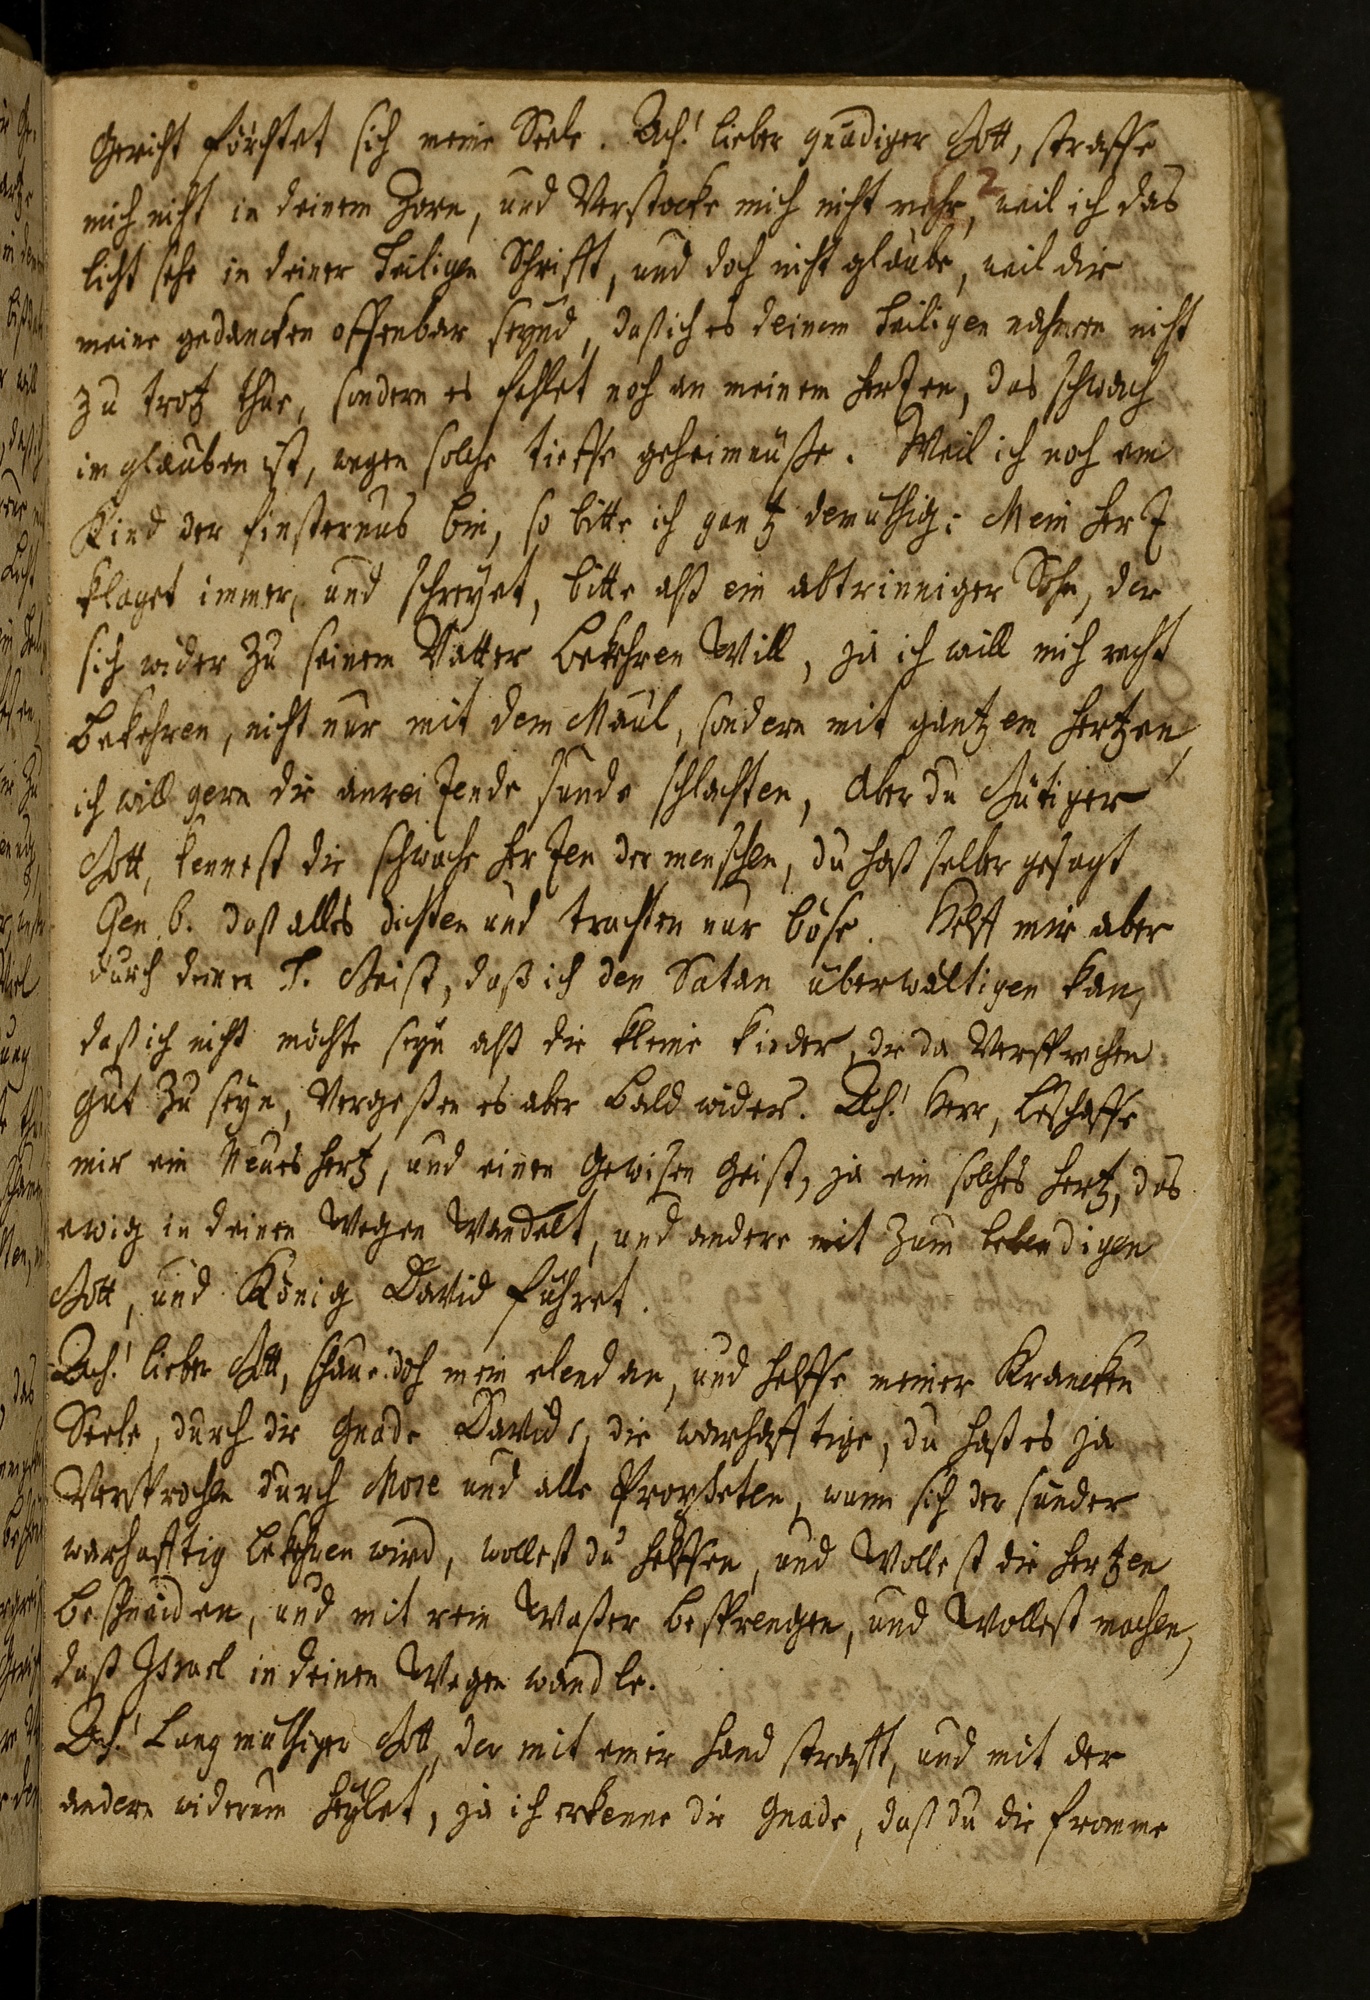 Gericht förchtet sich meine Seele. Ach! lieber gnädiger Gott, straffe
mich nicht in deinem Zorn, und Verstocke mich nicht mehr, weil ich das
2
licht sehe in deiner Heiligen Schrifft, und doch nicht glaube, weil dir
meine gedancken offenbar seynd, daß ich es deinem Heiligen nahmen nicht
zu trotz thue, sondern es fehlet noch an meinem hertzen, das schwach
im glauben ist, wegen solche tieffe geheimnüße. Weil ich noch ein
Kind der finsternus bin, so bitte ich gantz demuthig: Mein hertz
klaget immer, und schreyet, bitte alß ein abtrinniger Sohn, der
sich wider zu seinem Vatter bekehren Will, ja ich will mich recht
bekehren, nicht nur mit dem Maul, sondern mit gantzem hertzen,
ich will gern die anreitzende sunde schlachten, Aber du Gütiger
Gott, kennest die schwache hertzen der menschen, du hast selber gesagt
Gen. 6. daß alles dichten und trachten nur böse. Helff mir aber
durch deinen H. Geist, daß ich den Satan überwältigen kan,
daß ich nicht möchte seyn alß die kleine kinder, die da Versprechen
gut zu seyn, Vergeßen es aber bald wider. Ach! Herr, beschaffe
mir ein Neues hertz, und einen Gewisen Geist, ja ein solches hertz, das
ewig in deinen Wegen Wandelt, und andere mit zum lebendigen
Gott, und König David führet.
Ach! lieber Gott, schaue doch mein elend an, und helffe meiner Krancken
Seele, durch die Gnade Davids, die warhafftige, du hast es ja
Versprochen durch Mose und alle Propheten, wann sich der sünder
warhafftig bekehren wird, wollest du helffen, und Wollest die hertzen
beschneiden, und mit rein Waßer besprengen, und Wollest machen,
daß Israel in deinen Wegen wandle.
Ach! Langmüthiger Gott, der mit einer hand strafft, und mit der
andern widerum heylet, ja ich erkenne die Gnade, daß du die fromme